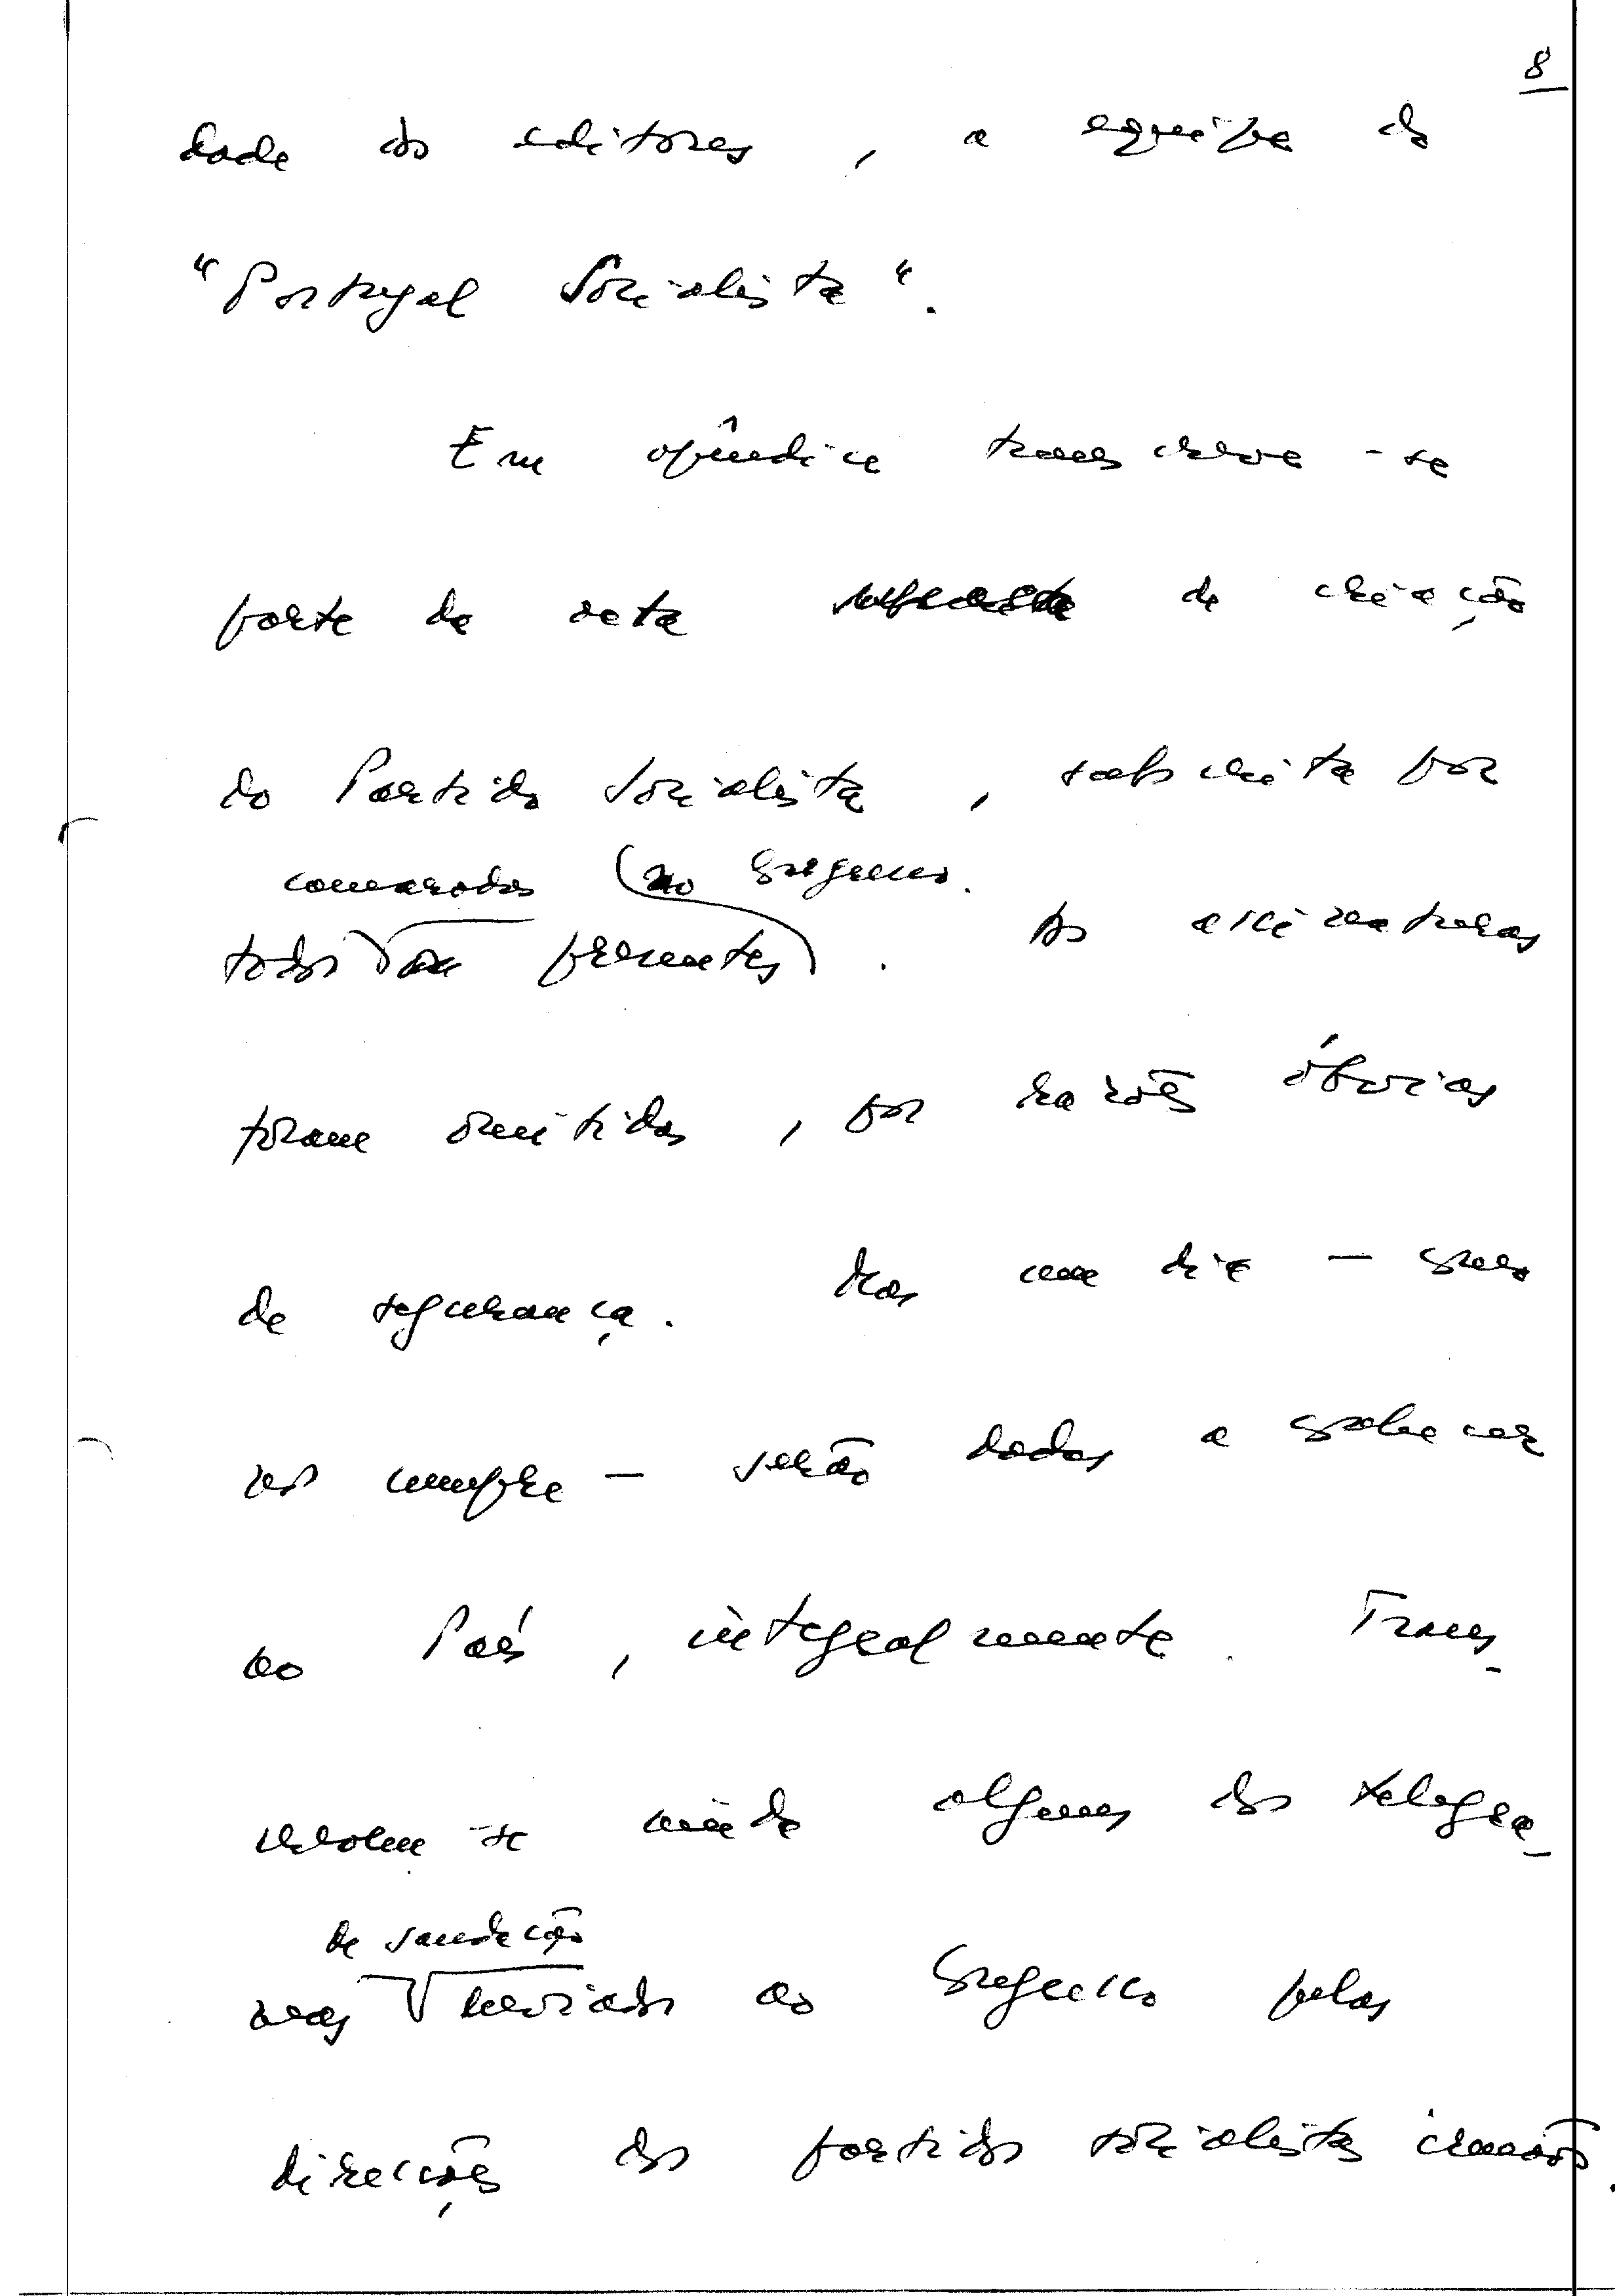 8
dade dos editores, a equipa do
"Portugal Socialista".
Em apêndice transcreve-se
parte da acta de criação
do Partido Socialista, subscrita por
camaradas (no Congresso.
todos os presentes). As assinaturas
foram omitidas, por razões óbvias
de segurança. Mas um dia — como
se cumpre — serão dadas a conhecer
ao País, integralmente. Trans-
crevem-se ainda alguns dos telegra-
de saudação
mas enviados ao Congresso pelas
direcções dos partidos socialistas irmãos.